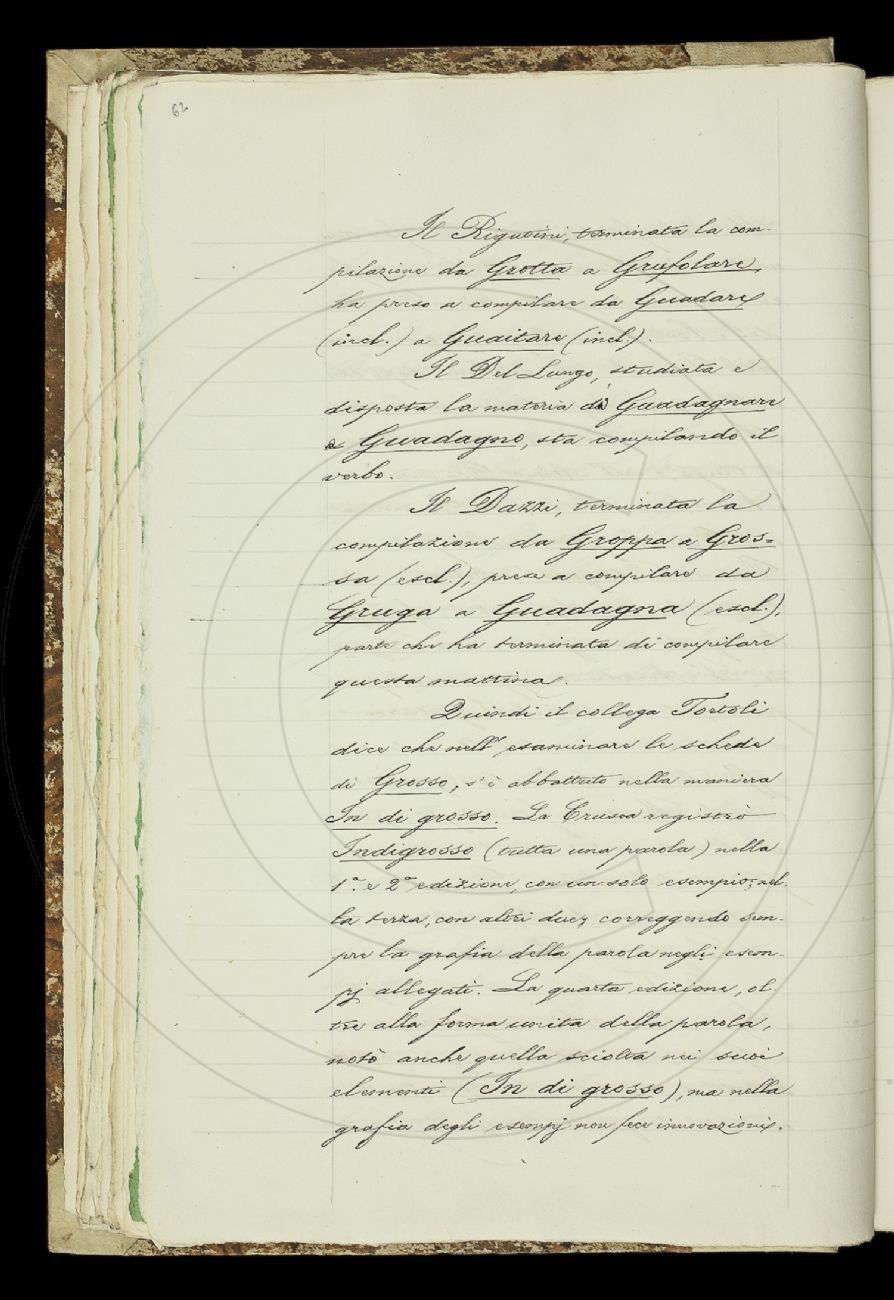 62
Il Rigutini, terminata la com-
pilazione da Grotta a Grufolare,
ha preso a compilare da Guadare
(incl.) a Guaitare (incl.).
Il Del Lungo, studiata e
disposta la materia di Guadagnare
e Guadagno, sta compilando il
verbo.
Il Dazzi, terminata la
compilazione da Groppa a Gros-
sa (escl.), prese a compilare da
Gruga a Guadagna (escl.),
parte che ha terminata di compilare
questa mattina.
Quindi il collega Tortoli
dice che nell' esaminare le schede
di Grosso, s'è abbattuto nella maniera
In di grosso. La Crusca registrò
Indigrosso (tutta una parola) nella
1ª. e 2ª edizione, con un solo esempio; nel-
la terza, con altri due; correggendo sem-
pre la grafia della parola negli esem-
pj allegati. La quarta edizione, ol-
tre alla forma unita della parola,
notò anche quella sciolta nei suoi
elementi (In di grosso), ma nella
grafia degli esempj non fece innovazioni.